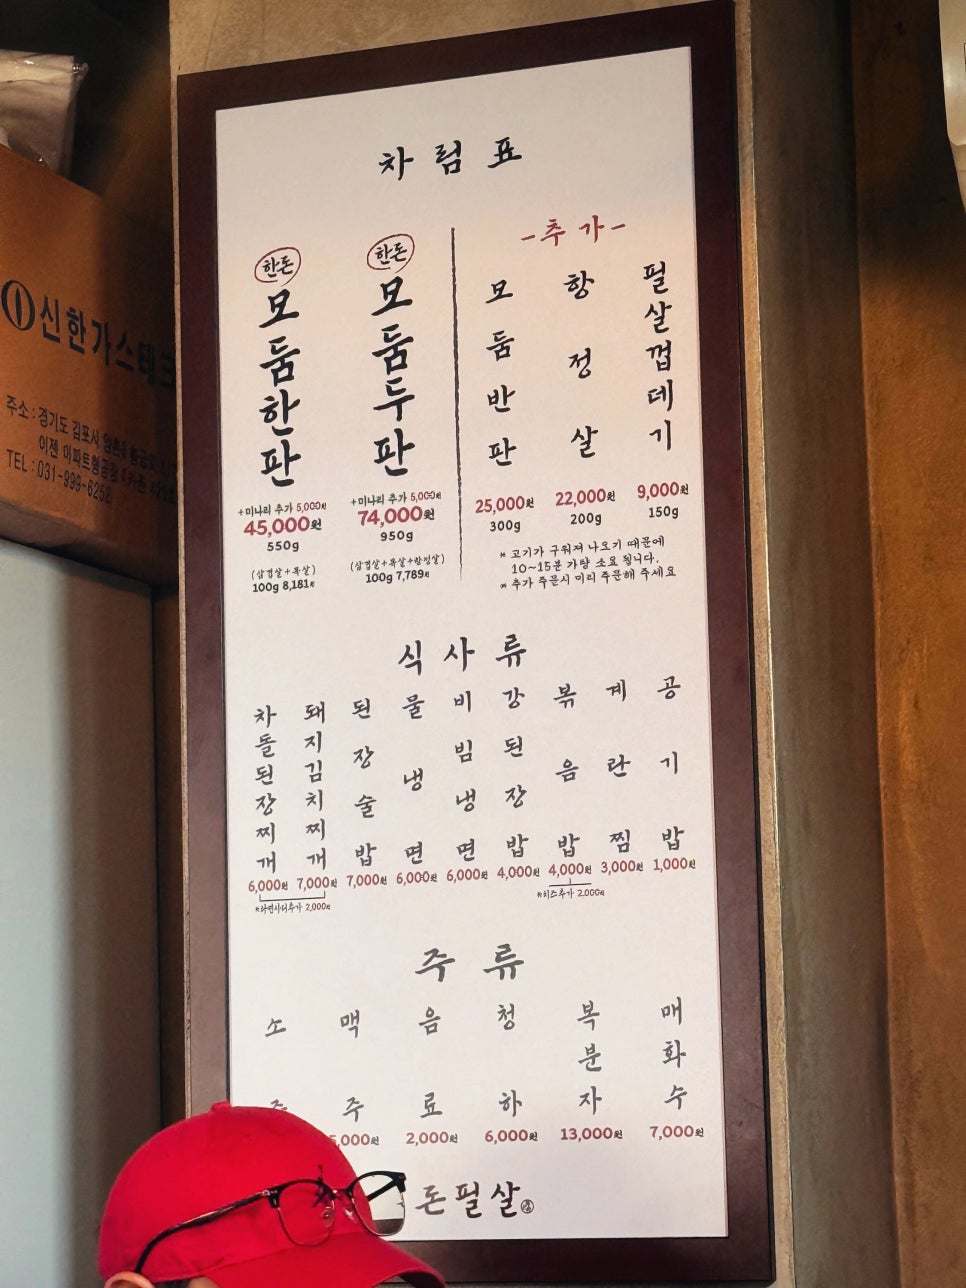 차림표
한돈
모둠한판
+미나리 추가 5,000원
45,000원
550g
(삼겹살+목살)
100g 8,181원
한돈
모둠두판
+미나리 추가 5,000원
74,000원
950g
(삼겹살+목살+항정살)
100g 7,789원
-추가-
모둠반판
25,000원
300g
항정살
22,000원
200g
필살껍데기
9,000원
150g
* 고기가 구워져 나오기 때문에
10~15분 가량 소요 됩니다.
* 추가 주문시 미리 주문해 주세요
식사류
차돌된장찌개
6,000원
돼지김치찌개
7,000원
*라면사리추가 2,000원
된장술밥
7,000원
물냉면
6,000원
비빔냉면
6,000원
강된장밥
4,000원
볶음밥
4,000원
*치즈추가 2,000원
계란찜
3,000원
공기밥
1,000원
주류
소주
맥주
5,000원
음료
2,000원
청하
6,000원
복분자
13,000원
매화수
7,000원
돈필살
신한가스테크
주소 : 경기도 김포시
이젠
TEL : 031-999-6252